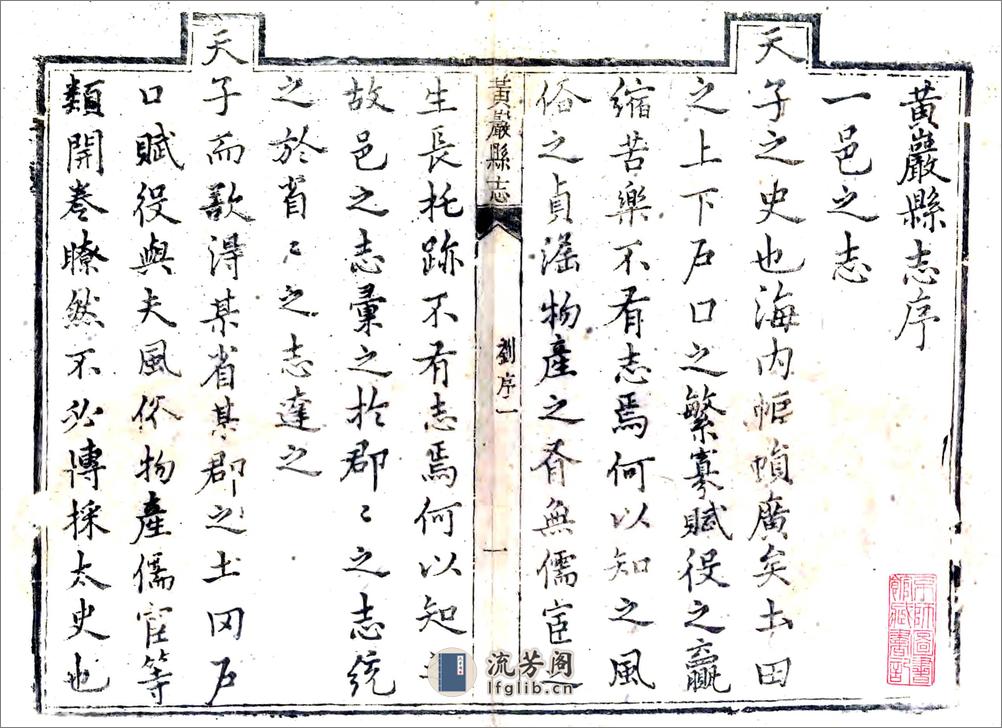 黃巖縣志序
一邑之志
天
子之史也海内幅蒷廣矣土田
之上下戶口之繁寡賦役之贏
縮苦樂不有志焉何以知之風
俗之貞滛物產之有無儒宦之
黃巖縣志
劉序一
一
生長托跡不有志焉何以知之
故邑之志彙之扵郡〻之志統
之於省〻之志達之
天
子而歎得某省某郡之土田戶
口賦役與夫風俗物產儒宦等
類開卷瞭然不必博採太史也
京師圖書
館藏書記
流芳阁
lfglib.cn